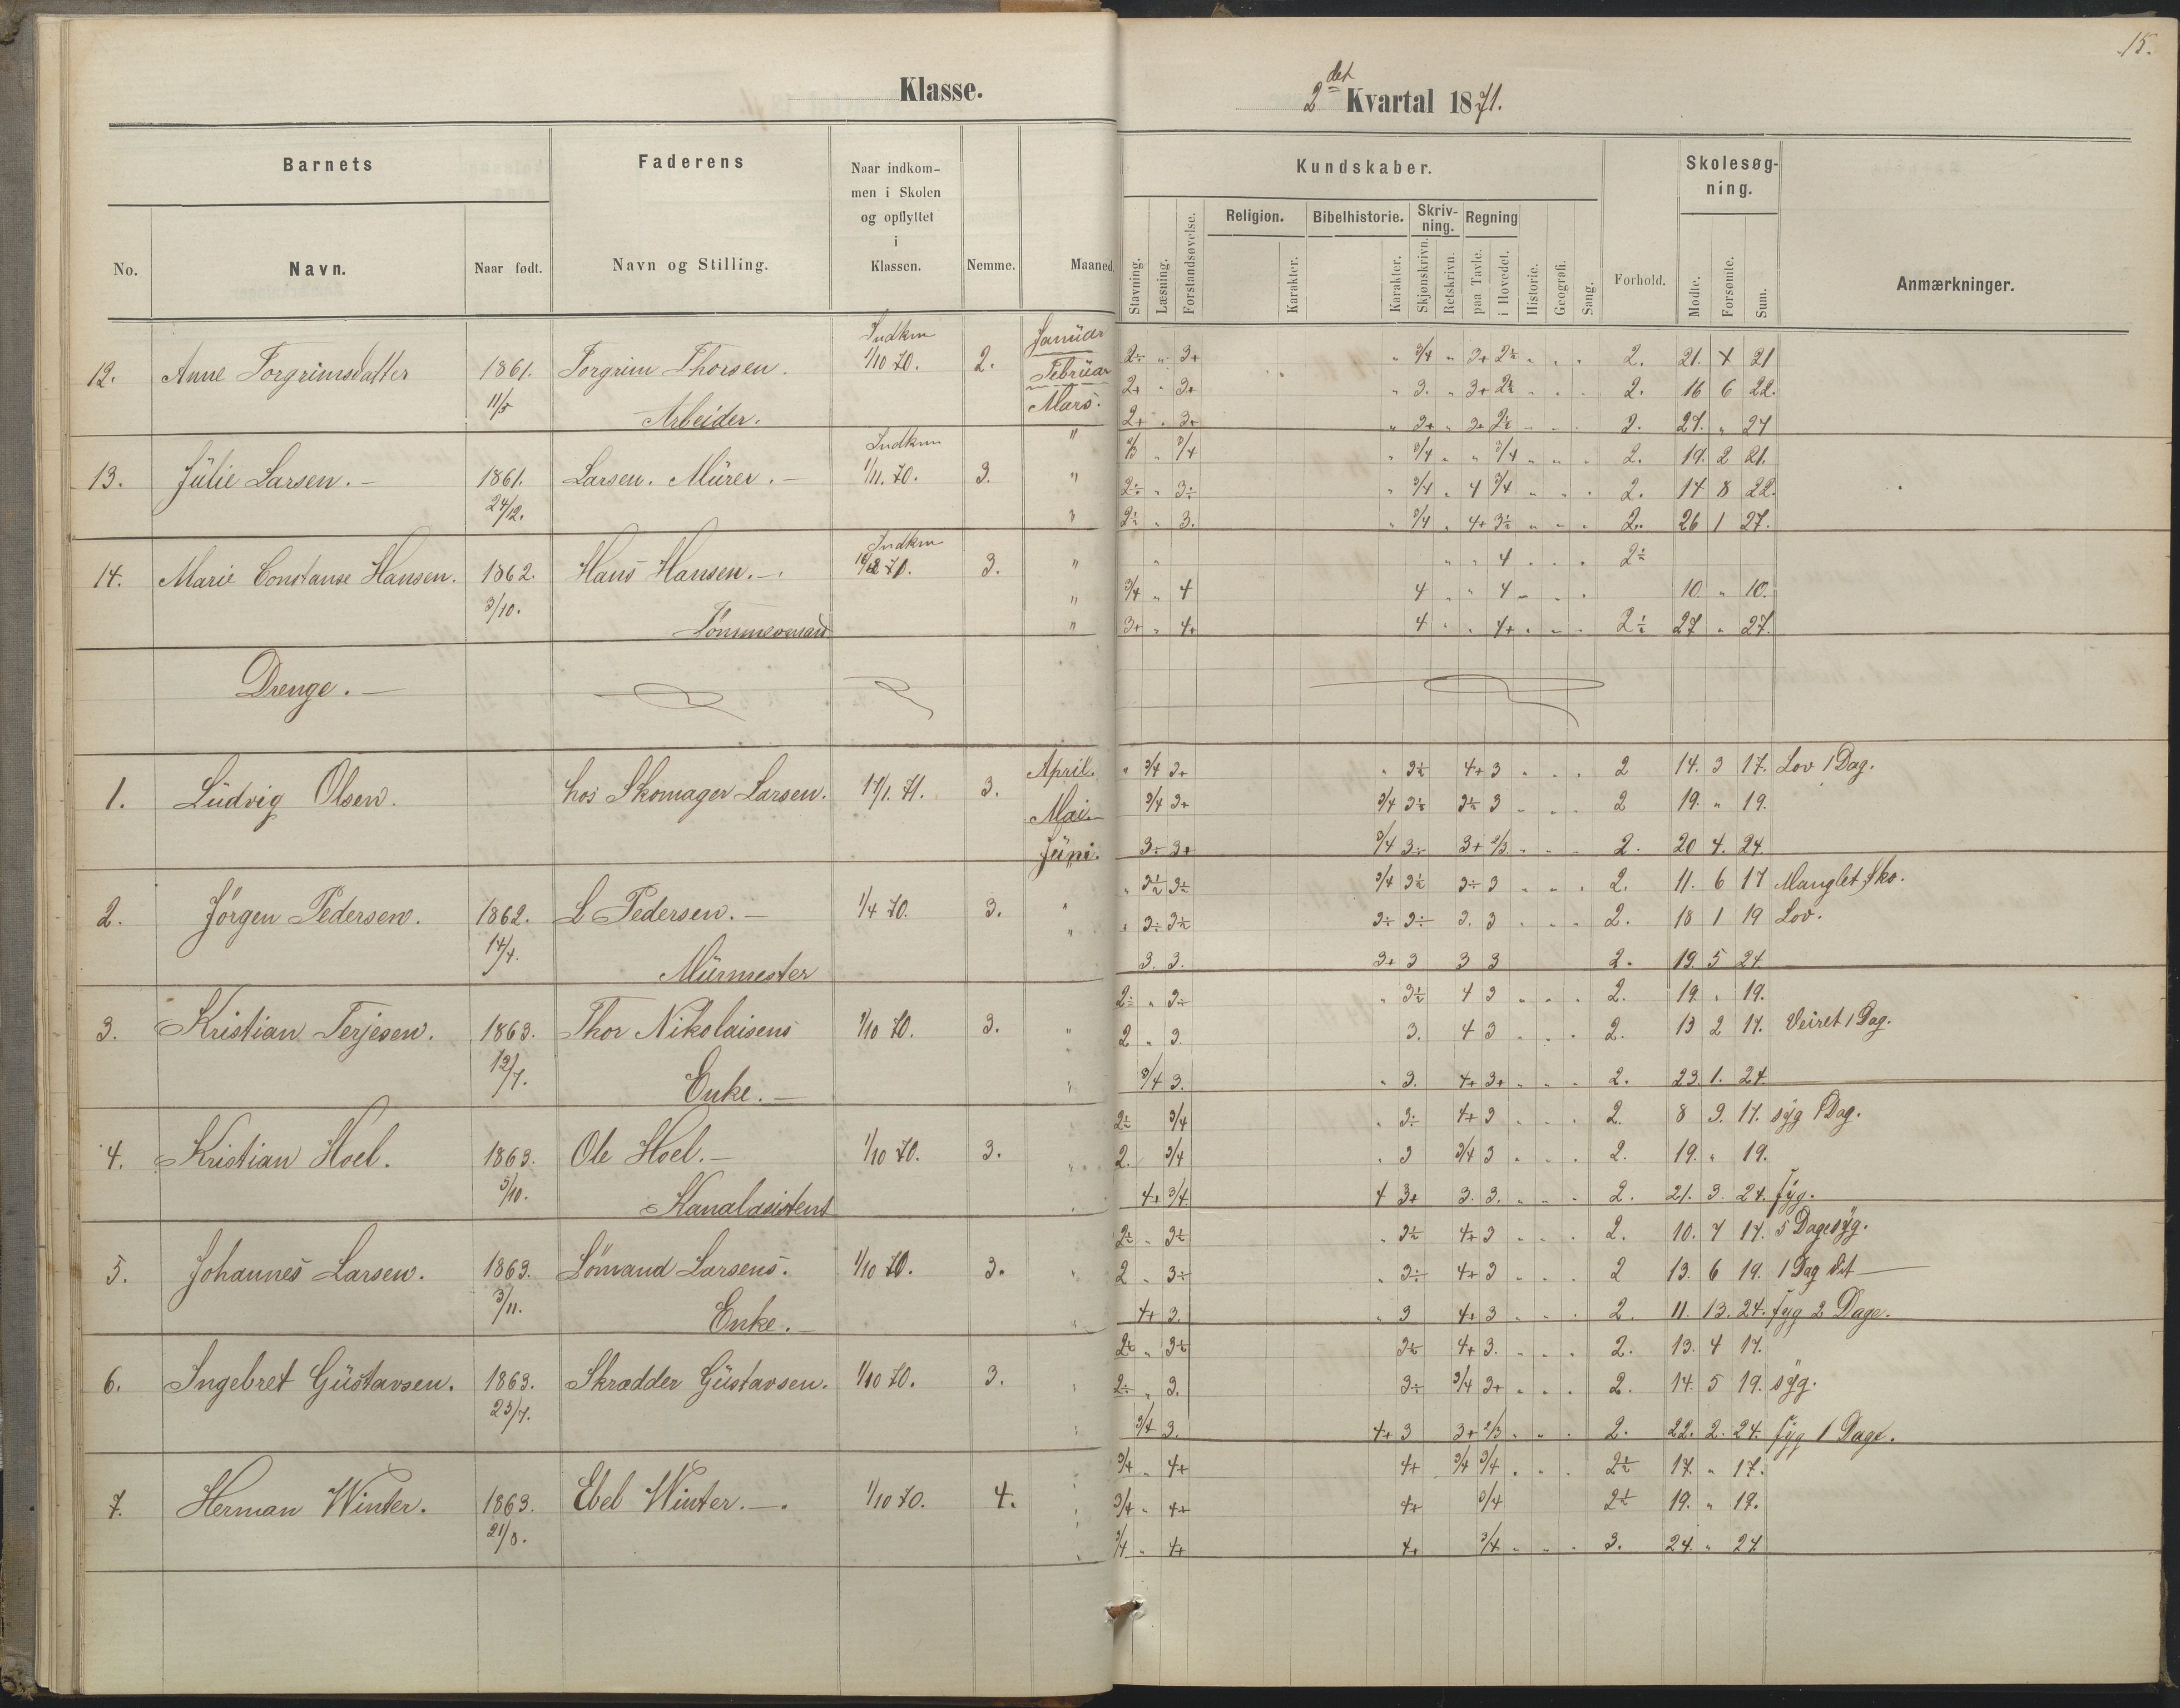 15.
Klasse.
2det Kvartal 1871.
Barnets
Faderens
Naar indkom-
men i Skolen
og opflyttet
i
Klassen.
No.
Navn.
Naar født.
Navn og Stilling.
Nemme.
Maaned.
Kundskaber.
Stavning.
Læsning.
Forstandsøvelse.
Religion.
Karakter.
Bibelhistorie.
Karakter.
Skriv-
ning.
Skjønskrivn.
Retskrivn.
Regning
paa Tavle.
i Hovedet.
Historie.
Geografi.
Sang.
Forhold.
Skolesøg-
ning.
Mødte.
Forsømte.
Sum.
Anmærkninger.
12. Anne Torgrimsdatter 1861. 11/5 Torgrim Thorsen. Arbeider. Indkm 1/10 70. 2.
Januar 2÷ " 3+ " 3/4 " 3+ 2½ " " " 2. 21. X 21
Februar 2+ " 3+ " 3. " 3+ 2½ " " " 2. 16 6 22.
Mars. 2+ " 3+ " 3+ " 3+ 2½ 2. 27. " 27
13. Julie Larsen. 1861. 24/12. Larsen. Murer. Indkm 1/11. 70. 3.
" 2/3 " 3/4 " 3/4 " " 3/4 " " " 2. 19. 2 21.
" 2÷ " 3÷ " 3/4 " 4 3/4 " " " 2. 14 8 22.
" 2½ " 3. " 3/4 " 4+ 3½ " " " 2. 26 1 27.
14. Marie Constanse Hansen. 1862. 3/10. Hans Hansen. Tømmermand Indkm 3.
" " " " 4 " " " 2½
" 3/4 " 4 4 " " 4 " " " 10. " 10.
" 3+ " 4+ 4 " " 4+ " " " 2½ 27 " 27.
Drenge.
1. Ludvig Olsen. hos Skomager Larsen. 17/1. 71. 3.
April. " 3/4 3+ " 3½ 4+ 3 " " " 2 14. 3 17. Lov 1 Dag.
Mai. 3/4 3+ 3/4 3½ 3½ 3 " " " 2 19. " 19.
Juni. 3÷ 3+ 3/4 3÷ 3+ 2/3 " " " 2. 20 4. 24.
2. Jørgen Pedersen. 1862. 14/4. L Pedersen. Murmester 1/4 70. 3.
" " 3½ 3½ 3/4 3½ 3÷ 3 " " " 2. 11. 6 17 Manglet Sko.
" " 3÷ 3½ 3÷ 3÷ 3. 3 " " " 2. 18 1 19 Lov.
3. 3. 3+ 3 3 3 2. 19. 5 24.
3. Kristian Terjesen. 1863. 12/7. Thor Nikolaisens Enke. 1/10 70. 3.
2÷ " 3÷ " 3½ 4 3 " " " 2. 19. " 19.
" 2 " 3. 3. 4 3 " " " 2. 13 2 17. Veiret 1 Dag.
" 3/4 3. " 3. 4+ 3+ " " " 2. 23. 1. 24.
4. Kristian Hoel. 1863. 5/10. Ole Hoel. Kanalasistent 1/10 70. 3.
2½ 3/4 " 3÷ 4+ 3 " " " 2. 8 9. 17. syg 1 Dag.
" 2. 3/4 " 3 3/4 3 " " " 2. 19. " 19.
" 4+ 3/4. 4 3+ 3. 3. " " " 2. 21. 3. 24. Syg.
5. Johannes Larsen. 1863. 3/11. Sömand Larsens. Enke. 1/10 70. 3.
2½ " 3½ " 3½ 4+ 3 " " " 2. 10. 7 17. 5 Dage syg.
" 2 " 3÷ " 3÷ 4+ 3 " " " 2 13. 6 19. 1 Dag dit
" 4+ 3. " 3 4+ 3 " " " 2. 11. 13. 24. Syg 2 Dage.
6. Ingebret Gustavsen. 1863. 23/7. Skrædder Gustavsen. 1/10 70. 3.
2½ " 3½ 3½ 4+ 3. " " " 2. 13. 4 17.
" 2÷ " 3. 3÷ 3/4 3+ " " " 2. 14. 5 19. syg.
" 3/4 3. 4+ 3 3+ 2/3 " " " 2. 22. 2. 24. Syg 1 Dage.
7. Herman Winter. 1863. 21/8. Ebel Winter. 1/10 70. 4.
" 3/4 " 4+ 4+ 3/4 3/4 " " " 2½ 17. " 17.
" 3/4 " 4+ 4+ 3/4 2½ 19. " 19.
" 3/4 " 4+ 4+ 3/4 " " " 3. 24. " 24